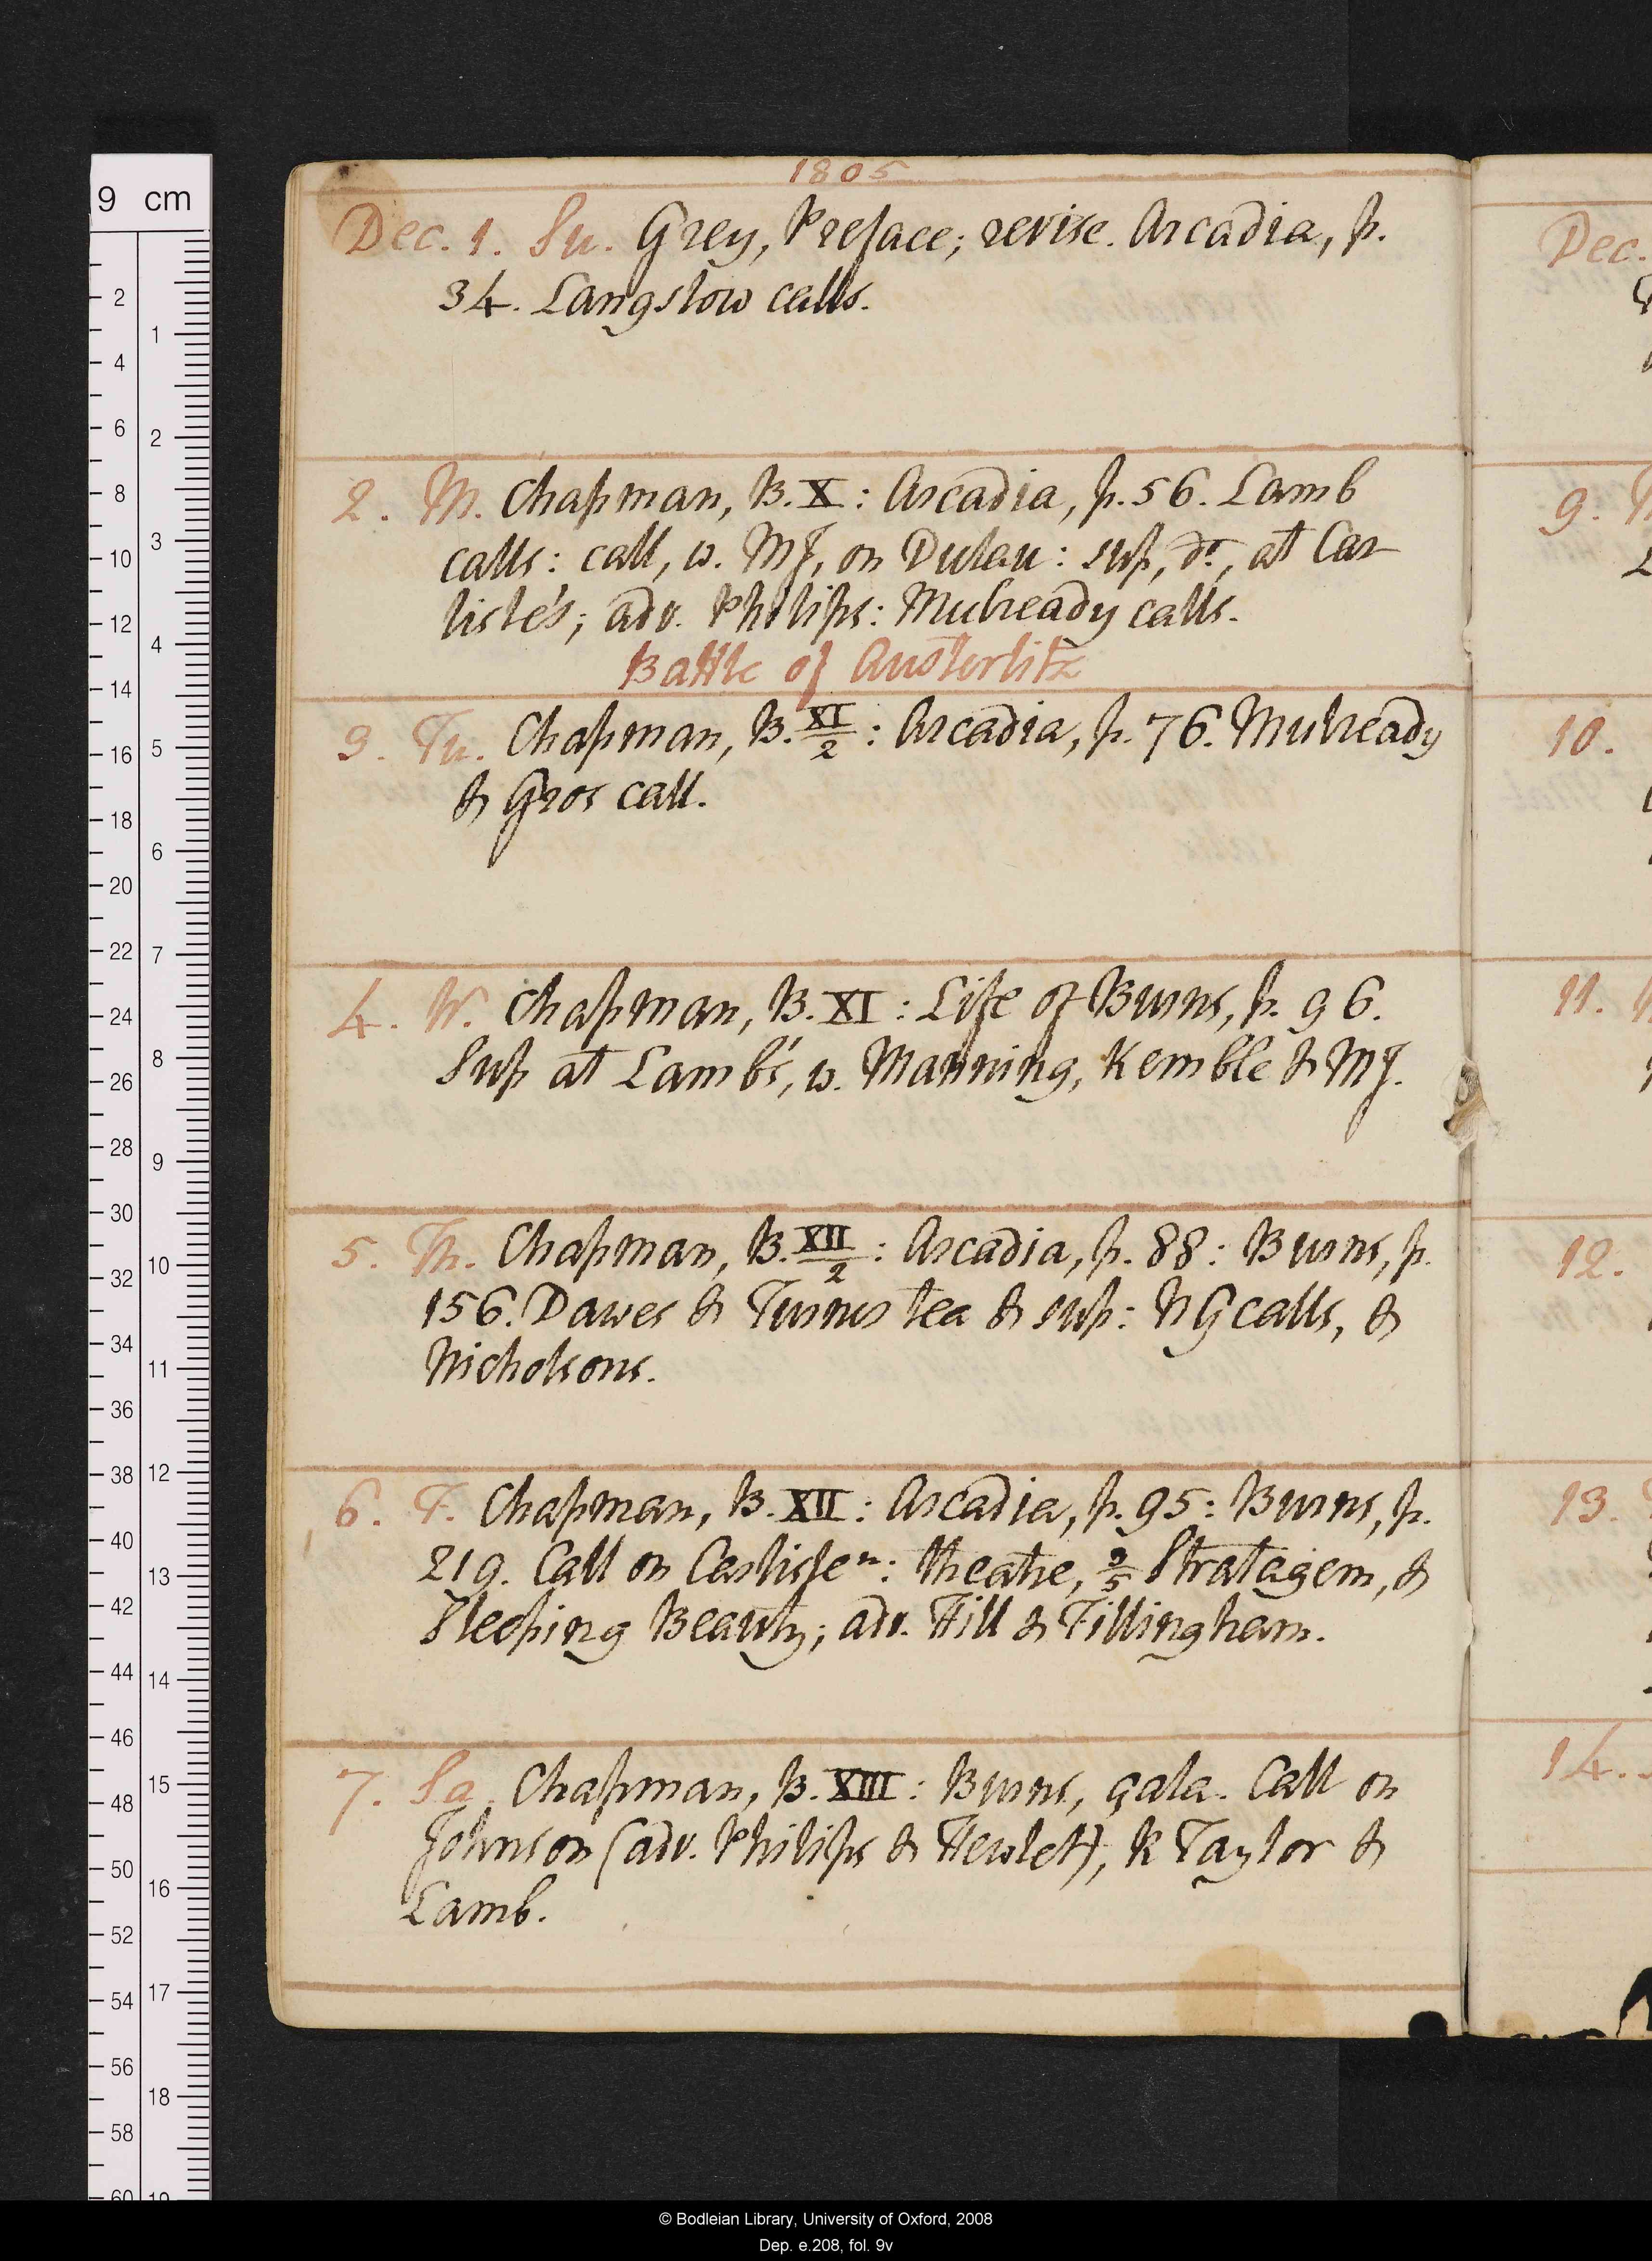 1805
Dec. 1. Su. Grey, Preface; revise. Arcadia, p.
34. Langslow calls.
2. M. Chapman, B. X: Arcadia, p. 56. Lamb
calls: call, w. MJ, on Dulau: sup, do, at Car
lisle's; adv. Philips: Mulready calls.
Battle of Austerlitz
3. Tu. Chapman, B. XI/2: Arcadia, p. 76. Mulready
& Gros call.
4. W. Chapman, B. XI: Life of Burns, p. 96.
Sup at Lamb's, w. Manning, Kemble & MJ.
5. Th. Chapman, B. XII/2: Arcadia, p. 88: Burns, p.
156. Dawes & Turner tea & sup: NG calls, &
Nicholsons.
6. F. Chapman, B. XII: Arcadia, p. 95: Burns, p.
219. Call on Carlisle n: theatre, 2/5 Stratagem, &
Sleeping Beauty; adv. Hill & Fillingham.
7. Sa. Chapman, B. XIII: Burns, çala. Call on
Johnson (adv. Philips & Hewlet), R Taylor &
Lamb.
Dec.
9.
10.
11.
12.
13.
14.
9 cm
2
4
6
8
10
12
14
16
18
20
22
24
26
28
30
32
34
36
38
40
42
44
46
48
50
52
54
56
58
60
1
2
3
4
5
6
7
8
9
10
11
12
13
14
15
16
17
18
19
© Bodleian Library, University of Oxford, 2008
Dep. e.208, fol. 9v